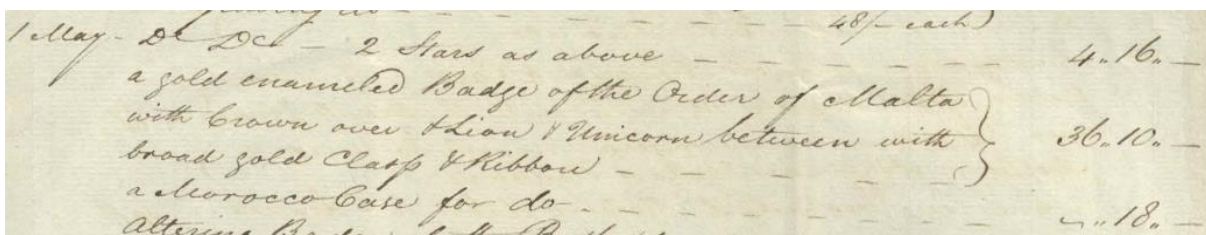 48/- each)
1 May - Do Do - 2 Stars as above - - - - - - 4 " 16 " -
a gold enameled Badge of the Order of Malta
with Crown over & Lion & Unicorn between with } 36 " 10 " -
broad gold Clasp & Ribbon - - - - -
a Morocco Case for do - - - - - - - " 18 " -
altering